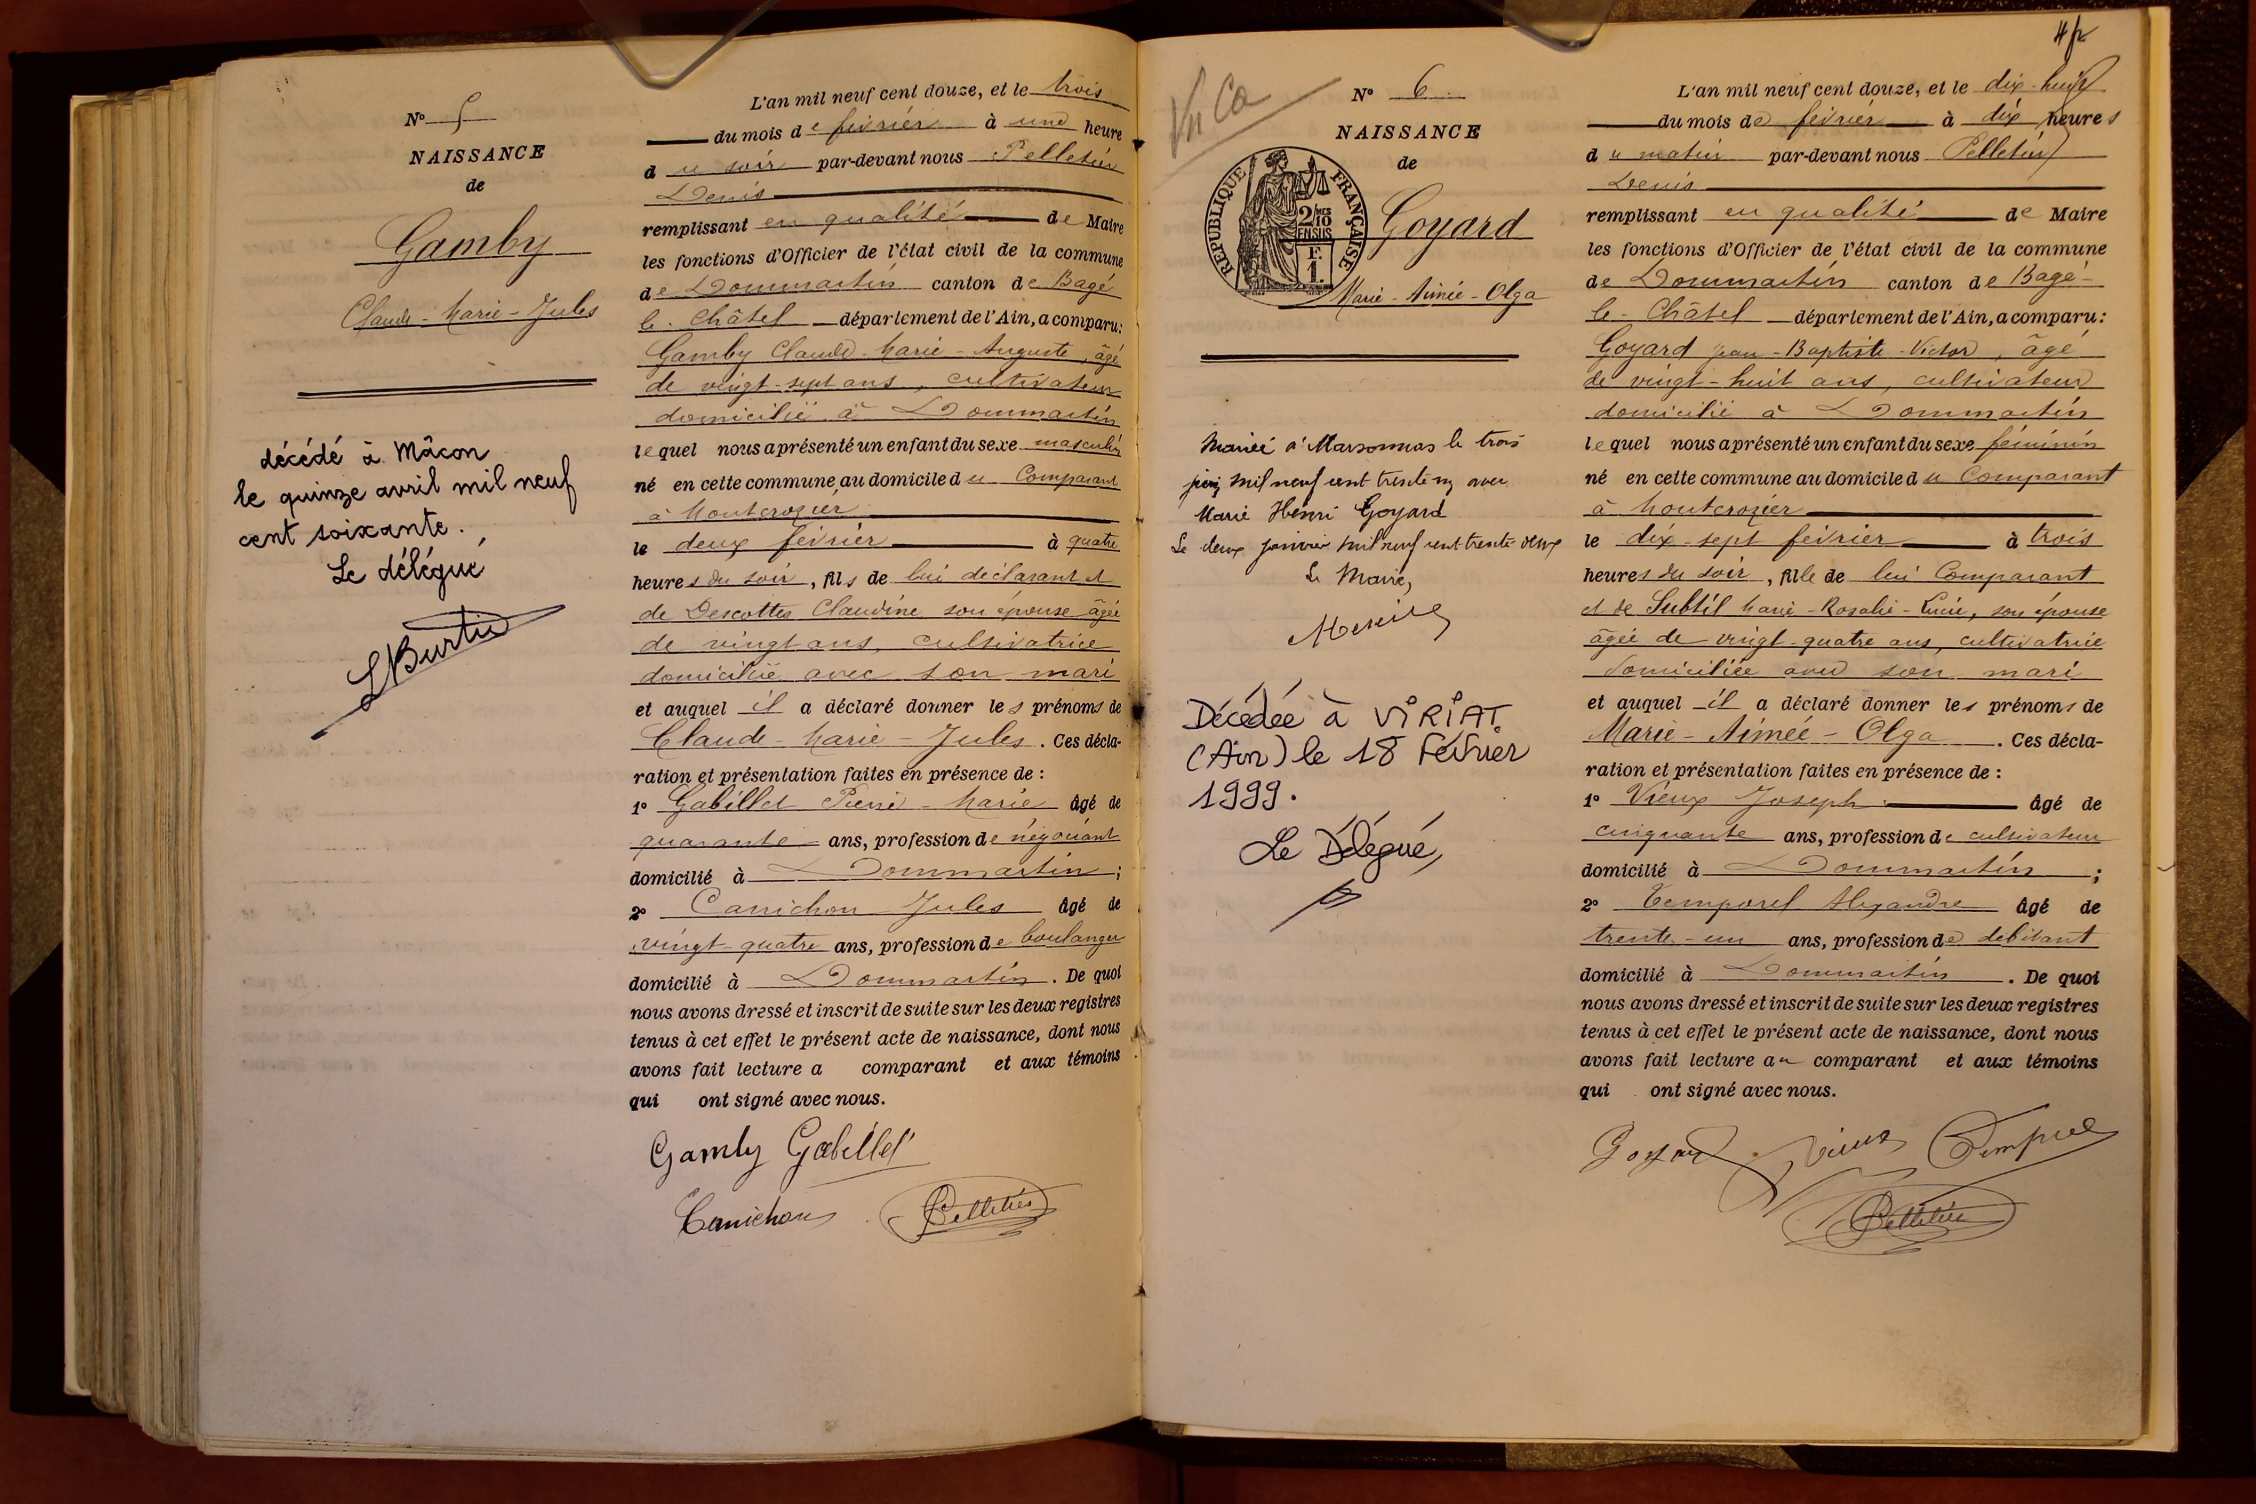 N° 5
NAISSANCE
de
Gamby
Claude-Marie-Jules
décédé à Mâcon
le quinze avril mil neuf
cent soixante.
Le délégué
L'an mil neuf cent douze, et le trois
du mois de février à une heure
du soir par-devant nous Pelletier
Denis
remplissant en qualité de Maire
les fonctions d'Officier de l'état civil de la commune
de Dommartin canton de Bagé
le-Châtel département de l'Ain, a comparu:
Gamby Claude-Marie-Auguste, âgé
de vingt-sept ans, cultivateur
domicilié à Dommartin
lequel nous a présenté un enfant du sexe masculin
né en cette commune, au domicile du Comparant
à Montcrozier
le deux février à quatre
heures du soir, fils de lui déclarant et
de Descottes Claudine son épouse âgée
de vingt ans, cultivatrice
domiciliée avec son mari
et auquel il a déclaré donner les prénoms de
Claude-Marie-Jules. Ces décla-
ration et présentation faites en présence de :
1° Gabillet Pierre-Marie âgé de
quarante ans, profession de négociant
domicilié à Dommartin ;
2° Canichon Jules âgé de
vingt-quatre ans, profession de boulanger
domicilié à Dommartin. De quoi
nous avons dressé et inscrit de suite sur les deux registres
tenus à cet effet le présent acte de naissance, dont nous
avons fait lecture a comparant et aux témoins
qui ont signé avec nous.
Gamby Gabillet
Canichon Pelletier
4
N° 6
NAISSANCE
de
REPUBLIQUE FRANÇAISE
2/10 EN SUS
F. 1.
Goyard
Marie-Aimée-Olga
Mariée à Marsonnas le trois
mil neuf cent trente avec
Marie Henri Goyard
Le deux janvier mil neuf cent trente deux
Le Maire,
Décédée à VIRIAT
(Ain) le 18 Février
1999.
Le Délégué,
L'an mil neuf cent douze, et le dix-huit
du mois de février à dix heures
du matin par-devant nous Pelletier
Denis
remplissant en qualité de Maire
les fonctions d'Officier de l'état civil de la commune
de Dommartin canton de Bagé-
le-Châtel département de l'Ain, a comparu:
Goyard Jean-Baptiste-Victor, âgé
de vingt-huit ans, cultivateur
domicilié à Dommartin
lequel nous a présenté un enfant du sexe féminin
né en cette commune au domicile du Comparant
à Montcrozier
le dix-sept février à trois
heures du soir, fille de lui Comparant
et de Subtil Marie-Rosalie-Lucie, son épouse
âgée de vingt-quatre ans, cultivatrice
domiciliée avec son mari
et auquel il a déclaré donner les prénoms de
Marie-Aimée-Olga. Ces décla-
ration et présentation faites en présence de :
1° Vieux Joseph âgé de
cinquante ans, profession de cultivateur
domicilié à Dommartin ;
2° Temporel Alexandre âgé de
trente-un ans, profession de débitant
domicilié à Dommartin. De quoi
nous avons dressé et inscrit de suite sur les deux registres
tenus à cet effet le présent acte de naissance, dont nous
avons fait lecture au comparant et aux témoins
qui ont signé avec nous.
Goyard Vieux Temporel
Pelletier